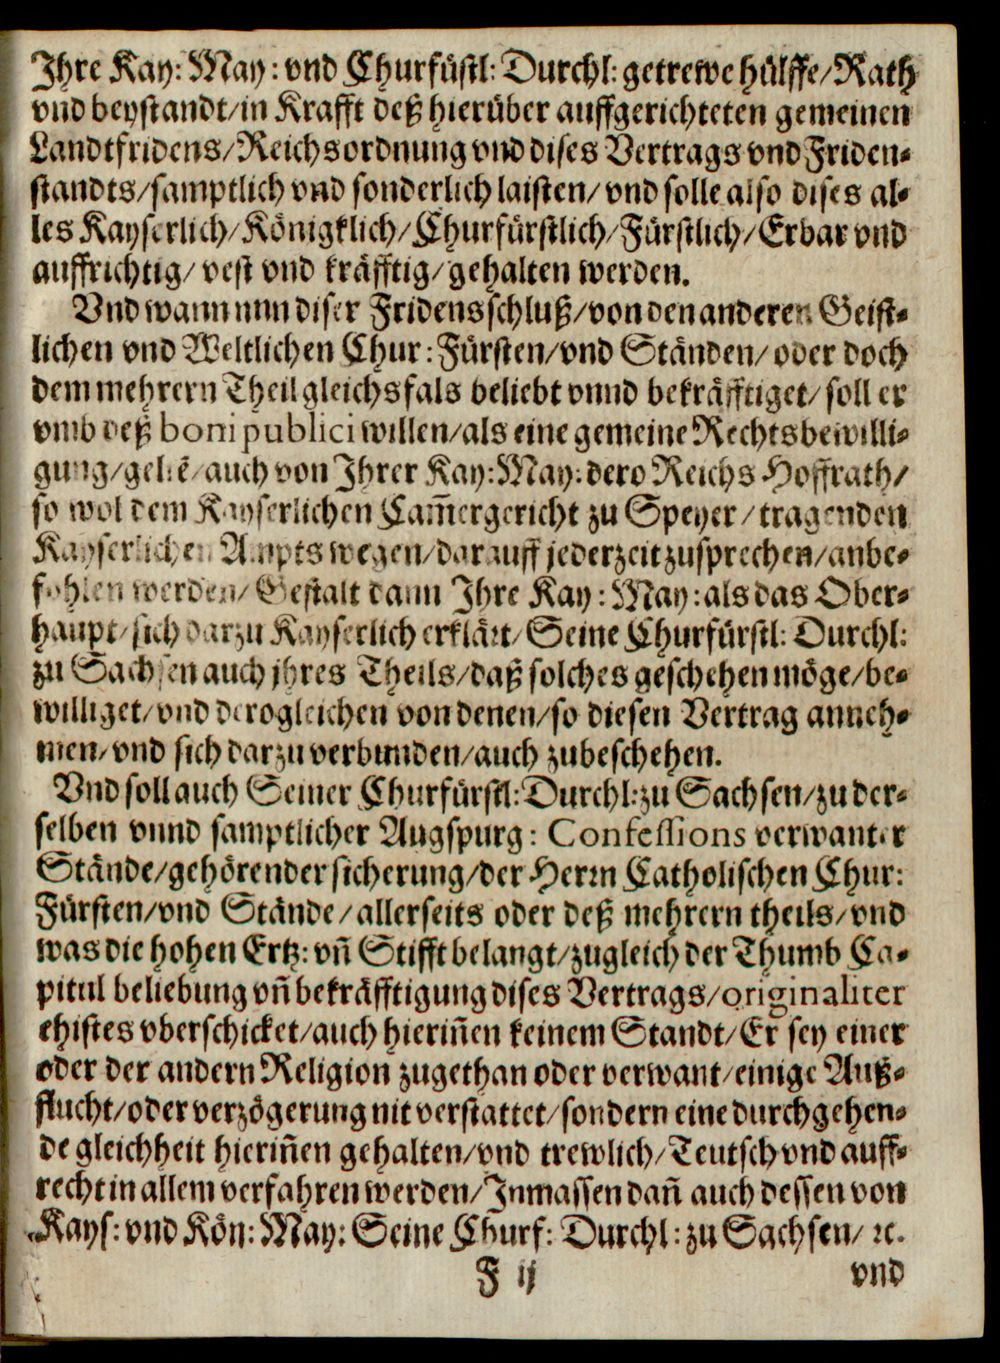 Ihre Kay: May: vnd Churfüstl: Durchl: getrewe hülffe/Rath
vnd beystandt/in Krafft deß hierüber auffgerichteten gemeinen
Landtfridens/Reichsordnung vnd dises Vertrags vnd Friden⸗
standts/samptlich vnd sonderlich laisten/ vnd solle also dises al⸗
les Kayserlich/Königklich/Churfürstlich/Fürstlich/Erbar vnd
auffrichtig/ vest vnd kräfftig/gehalten werden.
Vnd wann nun diser Fridensschluß/von den anderen Geist⸗
lichen vnd Weltlichen Chur: Fürsten/vnd Ständen/ oder doch
dem mehrern Theil gleichsfals beliebt vnnd bekräfftiget/ soll er
vmb deß boni publici willen/als eine gemeine Rechtsbewilli⸗
gung/gehē/auch von Ihrer Kay: May: dero Reichs Hoffrath/
so wol dem Kayserlichen Cam̃ergericht zu Speyer/tragenden
Kayserlichen Ampts wegen/darauff jederzeit zusprechen/anbe⸗
fohlen werden/ Gestalt dann Ihre Kay: May: als das Ober⸗
haupt/sich darzu Kayserlich erklärt/ Seine Churfürstl: Durchl:
zu Sachsen auch jhres Theils/daß solches geschehen möge/be⸗
williget/vnd derogleichen von denen/so diesen Vertrag anneh⸗
men/vnd sich darzu verbunden/auch zubeschehen.
Vnd soll auch Seiner Churfürstl: Durchl: zu Sachsen/zu der⸗
selben vnnd samptlicher Augspurg: Confessions verwanter
Stände/gehörender sicherung/der Herrn Catholischen Chur:
Fürsten/vnd Stände/allerseits oder deß mehrern theils/vnd
was die hohen Ertz: vn̄ Stifft belangt/zugleich der Thumb Ca⸗
pitul beliebung vn̄ bekräfftigung dises Vertrags/originaliter
ehistes vberschicket/auch hierin̄en keinem Standt/Er sey einer
oder der andern Religion zugethan oder verwant/einige Auß⸗
flucht/oder verzögerung nit verstattet/sondern eine durchgehen⸗
de gleichheit hierin̄en gehalten/vnd trewlich/Teutsch vnd auff⸗
recht in allem verfahren werden/Inmassen dan̄ auch dessen von
Kays: vnd Kön: May: Seine Churf: Durchl: zu Sachsen/ ꝛc.
F ij vnd